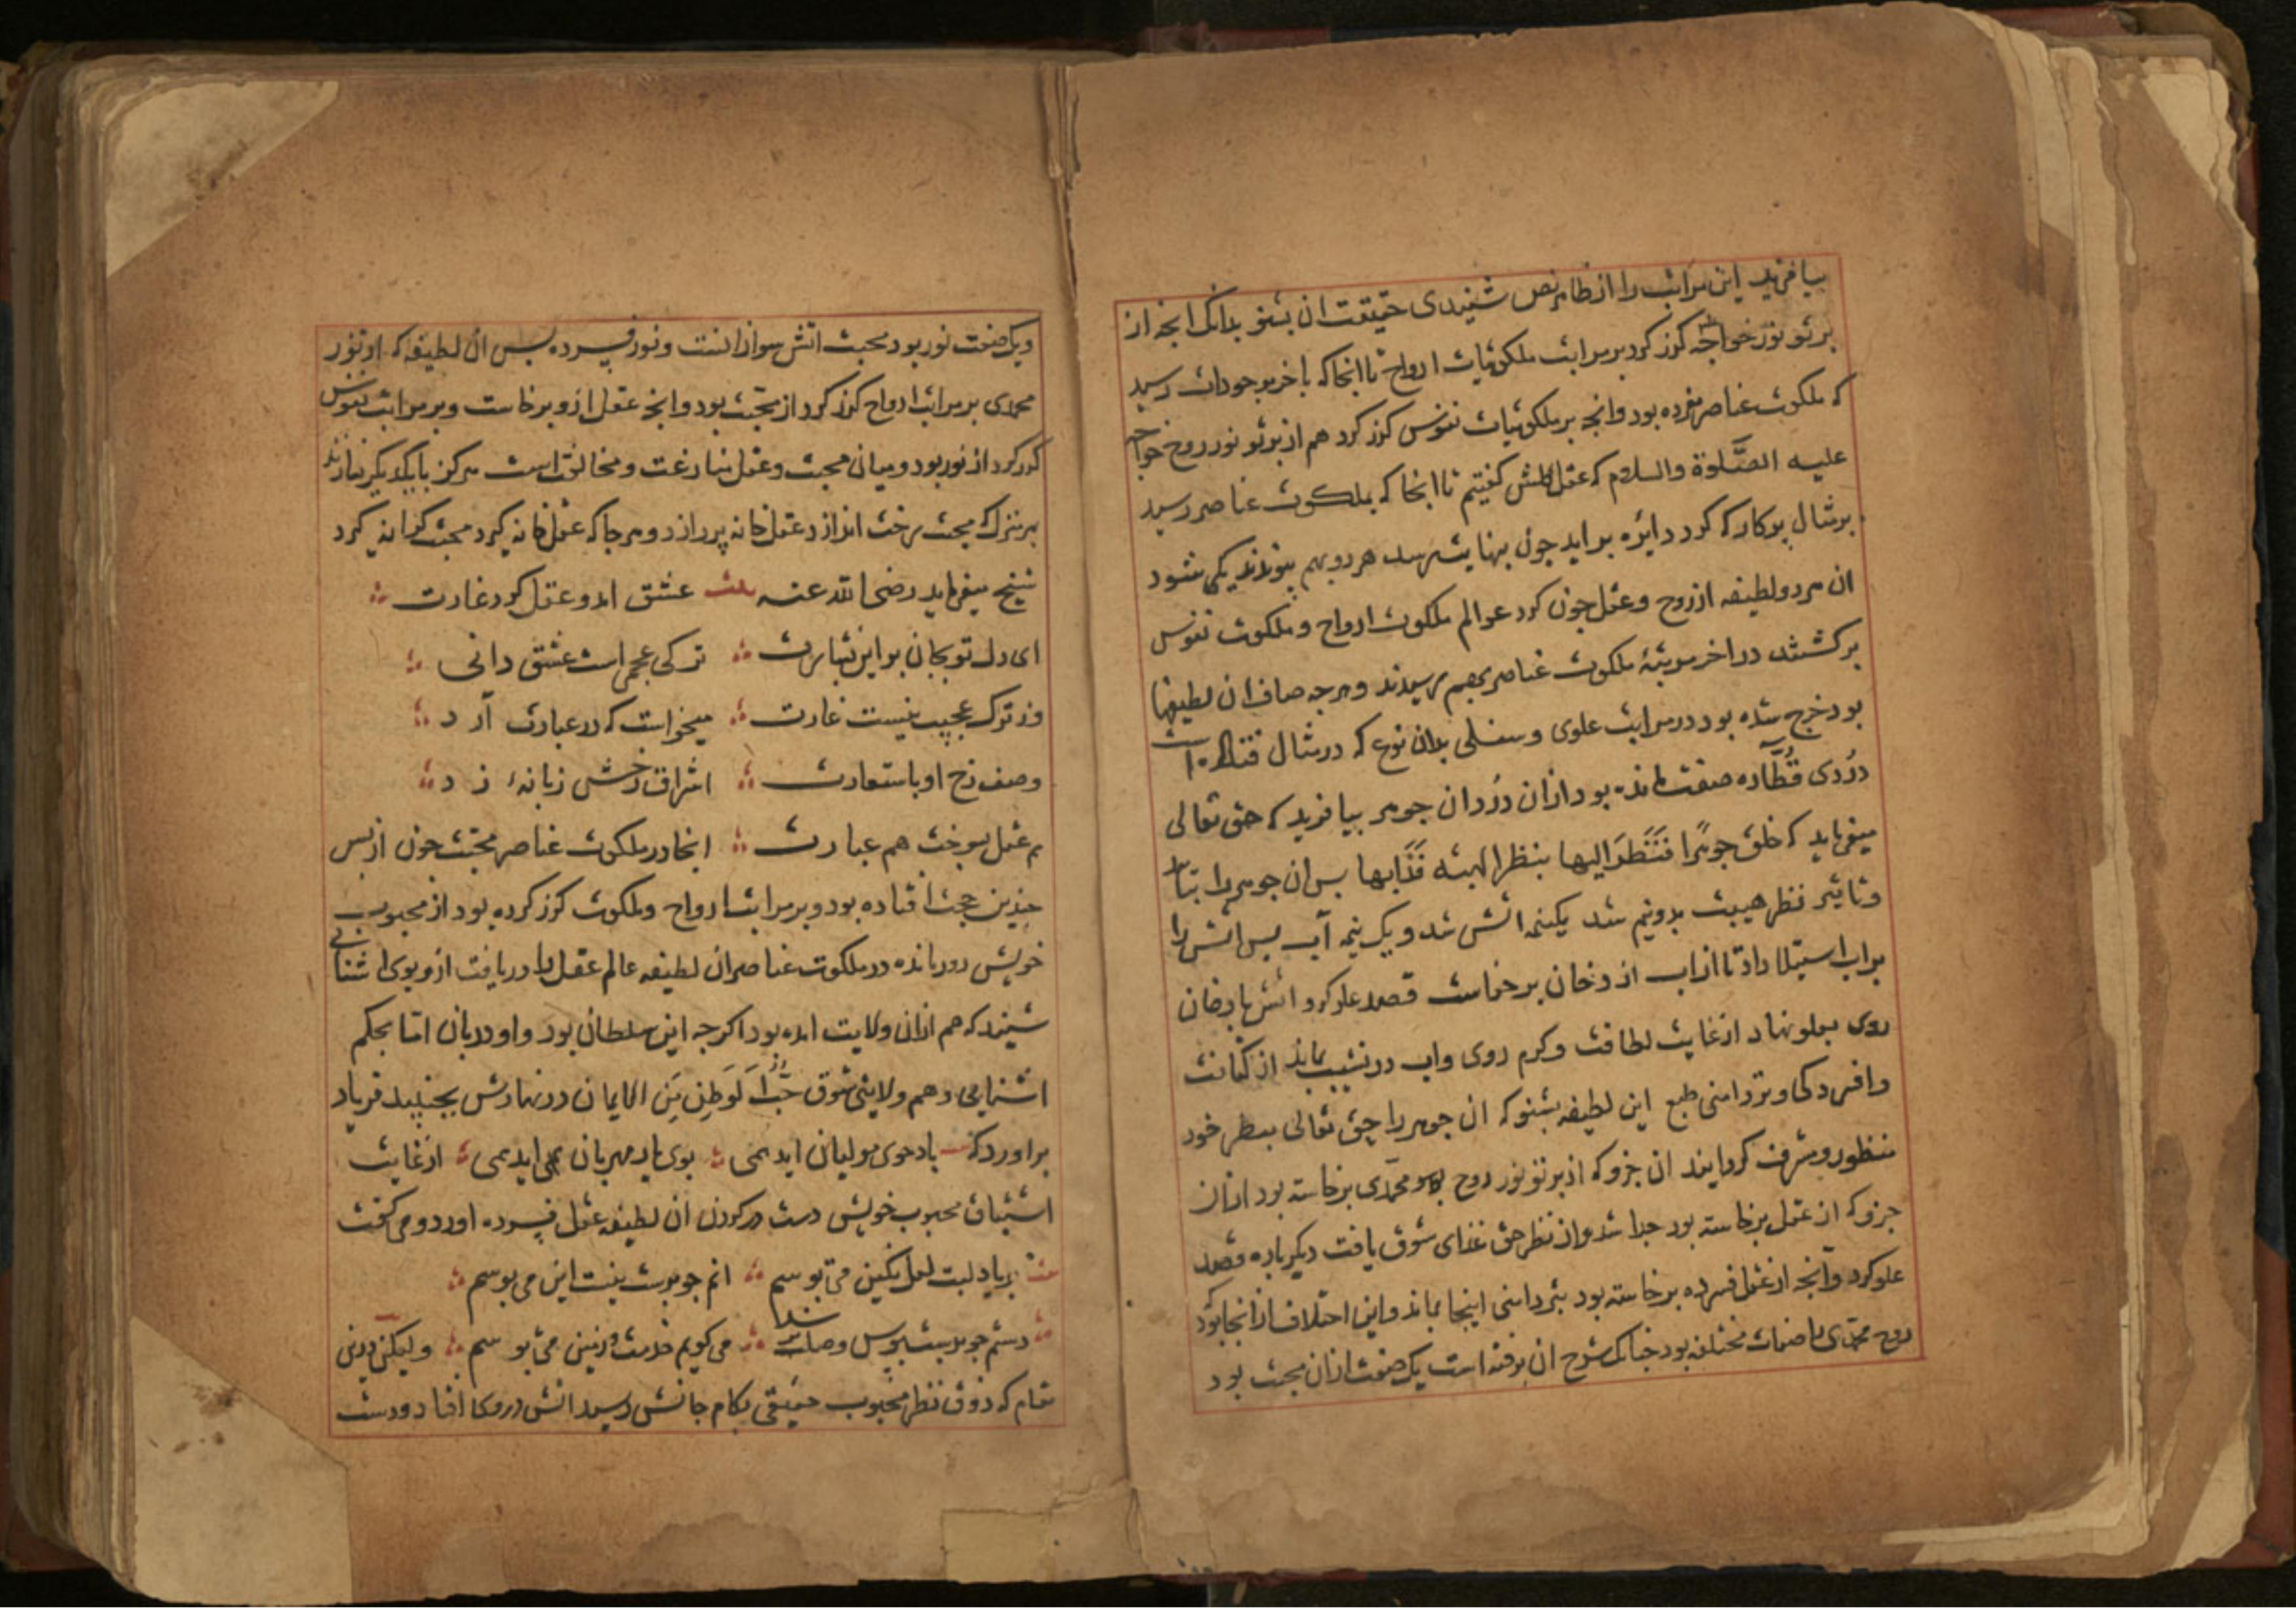 بیافرید این مراتب را از ظاهر نص شنیدی حقیقت ان بشنو بدانک انجه از
برتو نور خواجه کذر کرد بر مراتب ملکوتیات ارواح تا انجا که باخر موجودات رسید
که ملکوت عناصر مفرده بود وانجه بر ملکوتیات نفوس کذر کرد هم از برتو نور روح خواجه
علیه الصلوة والسلام که عقل کلش کفتیم تا انجا که بملکوت عناصر رسید
برمثال برکار که کرد دایره براید جون بنهایت رسد هر دو بهم بیوندند یکی شود
ان هر دو لطیفه از روح و عقل جون کرد عوالم ملکوت ارواح و ملکوت نفوس
برکشتند در اخر مرتبهٔ ملکوت عناصر بهم رسیدند و هرجه صاف ان لطیفها
بود خرج شده بود در مراتب علوی و سفلی بدان نوع که در مثال قند
دُردی قُطّاره صفت مانده بود ازان دُردان جوهر بیافرید که حق تعالی
میفرماید که خلق جوهرًا فَنَظَرَ الیها بنظر الهیبه فذابها بس ان جوهر را بتاب
و تاثیر نظر هیبت بدونیم شد یکنیمه اتش شد و یک نیمه آب بس اتش را
بر اب استیلا داد تا از اب از دخان برخاست قصد علو کرد اتش با دخان
روی بعلو نهاد از غایت لطافت و کرم روی واب در نشیب بماند از کثافت
وافسردکی و تردامنی طبع این لطیفه بشنو که ان جوهر را جق تعالی بنظر خود
منظور و مشرف کردانید ان جزو که از برتو نور روح محمدی برخاسته بود ازان
جزو که از عقل برخاسته بود جدا شد واز نظر حق غذای شوق یافت دیکرباره قصد
علو کرد وآنجه از عقل فسرده برخاسته بود بتردامنی اینجا بماند واین اختلاف از انجا بود که
روح محمدی با صفات مختلفه بود جنانک شرح ان برفته است یک صفت ازان محبت بود
ویک صفت نور بود محبت اتش سوزانست و نور فسرده بس ان لطیفه که از نور
محمدی بر مراتب ارواح کذر کرد از محبت بود وانجه عقل ازو برخاست و بر مراتب نفوس
کذر کرد از نور بود و میان محبت و عقل منازعت و مخالفت است هرکز با یکدیکر نسازند
بهر منزل که محبت رخت اندازد عقل خانه بردازد و هرجا که عقل خانه کیرد محبت کرانه کیرد
شیخ میفرماید رضی الله عنه عشق امد و عقل کرد غارت
ای دل تو بجان بر این بشارت ترکی عجمی است عشق دانی
وز ترک عجیب نیست غارت میخواست که در عبارت آر د
وصف رخ او باستعارت اشراق رخش زبانهٔ ز د
هم عقل بسوخت هم عبارت انجا در ملکوت عناصر محبت جون از بس
جندین حجب افتاده بود و بر مراتب ارواح و ملکوت کذر کرده بود از محبوب
خویش دور مانده در ملکوت عناصر ان لطیفه عالم عقل را دریافت ازو بوی اشنایی
شنید که هم ازان ولایت امده بود اکرجه این سلطان بود و او دربان اما بحکم
اشنایی و هم ولایتی شوق حُبُّ الوَطَنِ مِنَ الایمان در نهادش بجنبید فریاد
براورد که باد جوی مولیان اید همی بوی یار مهربان اید همی از غایت
اشتیاق محبوب خویش دست در کردن ان لطیفه عقل فسرده اورد و می کفت
بر یاد لبت لعل نکین می بوسم انم جو بدست نیست این می بوسم
دستم جو بدست بوس وصلت نرسد می کویم خدمت و زمین می بوسم ولیکن درین
مقام که ذوق نظر محبوب حقیقی بکام جانش رسید اتش درو کار افتاد و دست